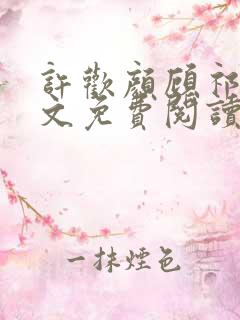 許歡顏顧祁
文免費閱讀
一抹煙色